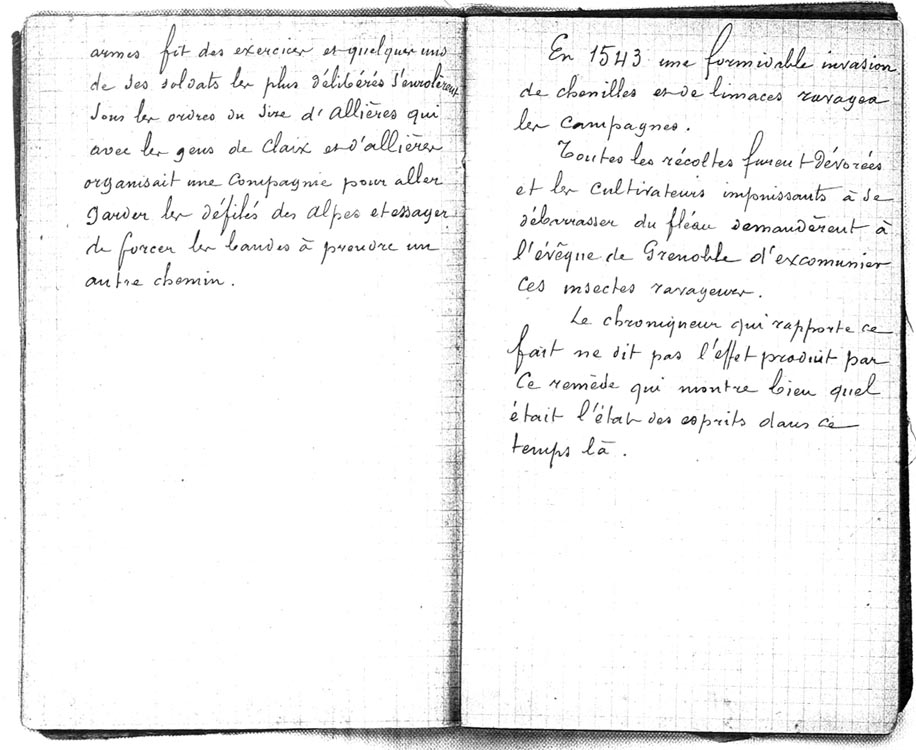 armes fit des exercices et quelques uns
de ses soldats les plus délibérés s'enrolèrent
sous les ordres du Sire d'Allières qui
avec les gens de Claix et d'Allières
organisait une Compagnie pour aller
garder les défilés des Alpes et essayer
de forcer les bandes à prendre un
autre chemin.
En 1543 une formidable invasion
de chenilles et de limaces ravagea
les Campagnes.
Toutes les récoltes furent dévorées
et les cultivateurs impuissants à se
débarrasser du fléau demandèrent à
l'évêque de Grenoble d'excomunier
ces insectes ravageurs.
Le chroniqueur qui rapporte ce
fait ne dit pas l'effet produit par
Ce remède qui montre bien quel
était l'état des esprits dans ce
temps là.